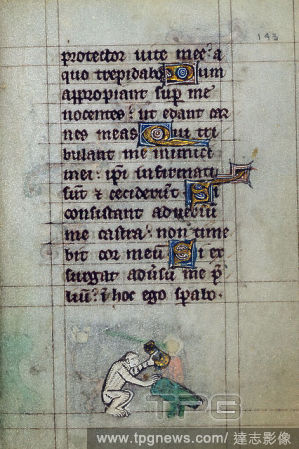 143
protector vite mee: a
quo trepidabo Dum
appropiant sup me
nocentes: ut edant car
nes meas Qui tri
bulant me inimici
mei: ipi infirmati
sūt & ceciderūt Si
consistant adversū
me castra: non time
bit cor meū Si ex
surgat adūsū me p̄
liū: ī hoc ego spabo.
TPG
www.tpgnews.com/達志影像